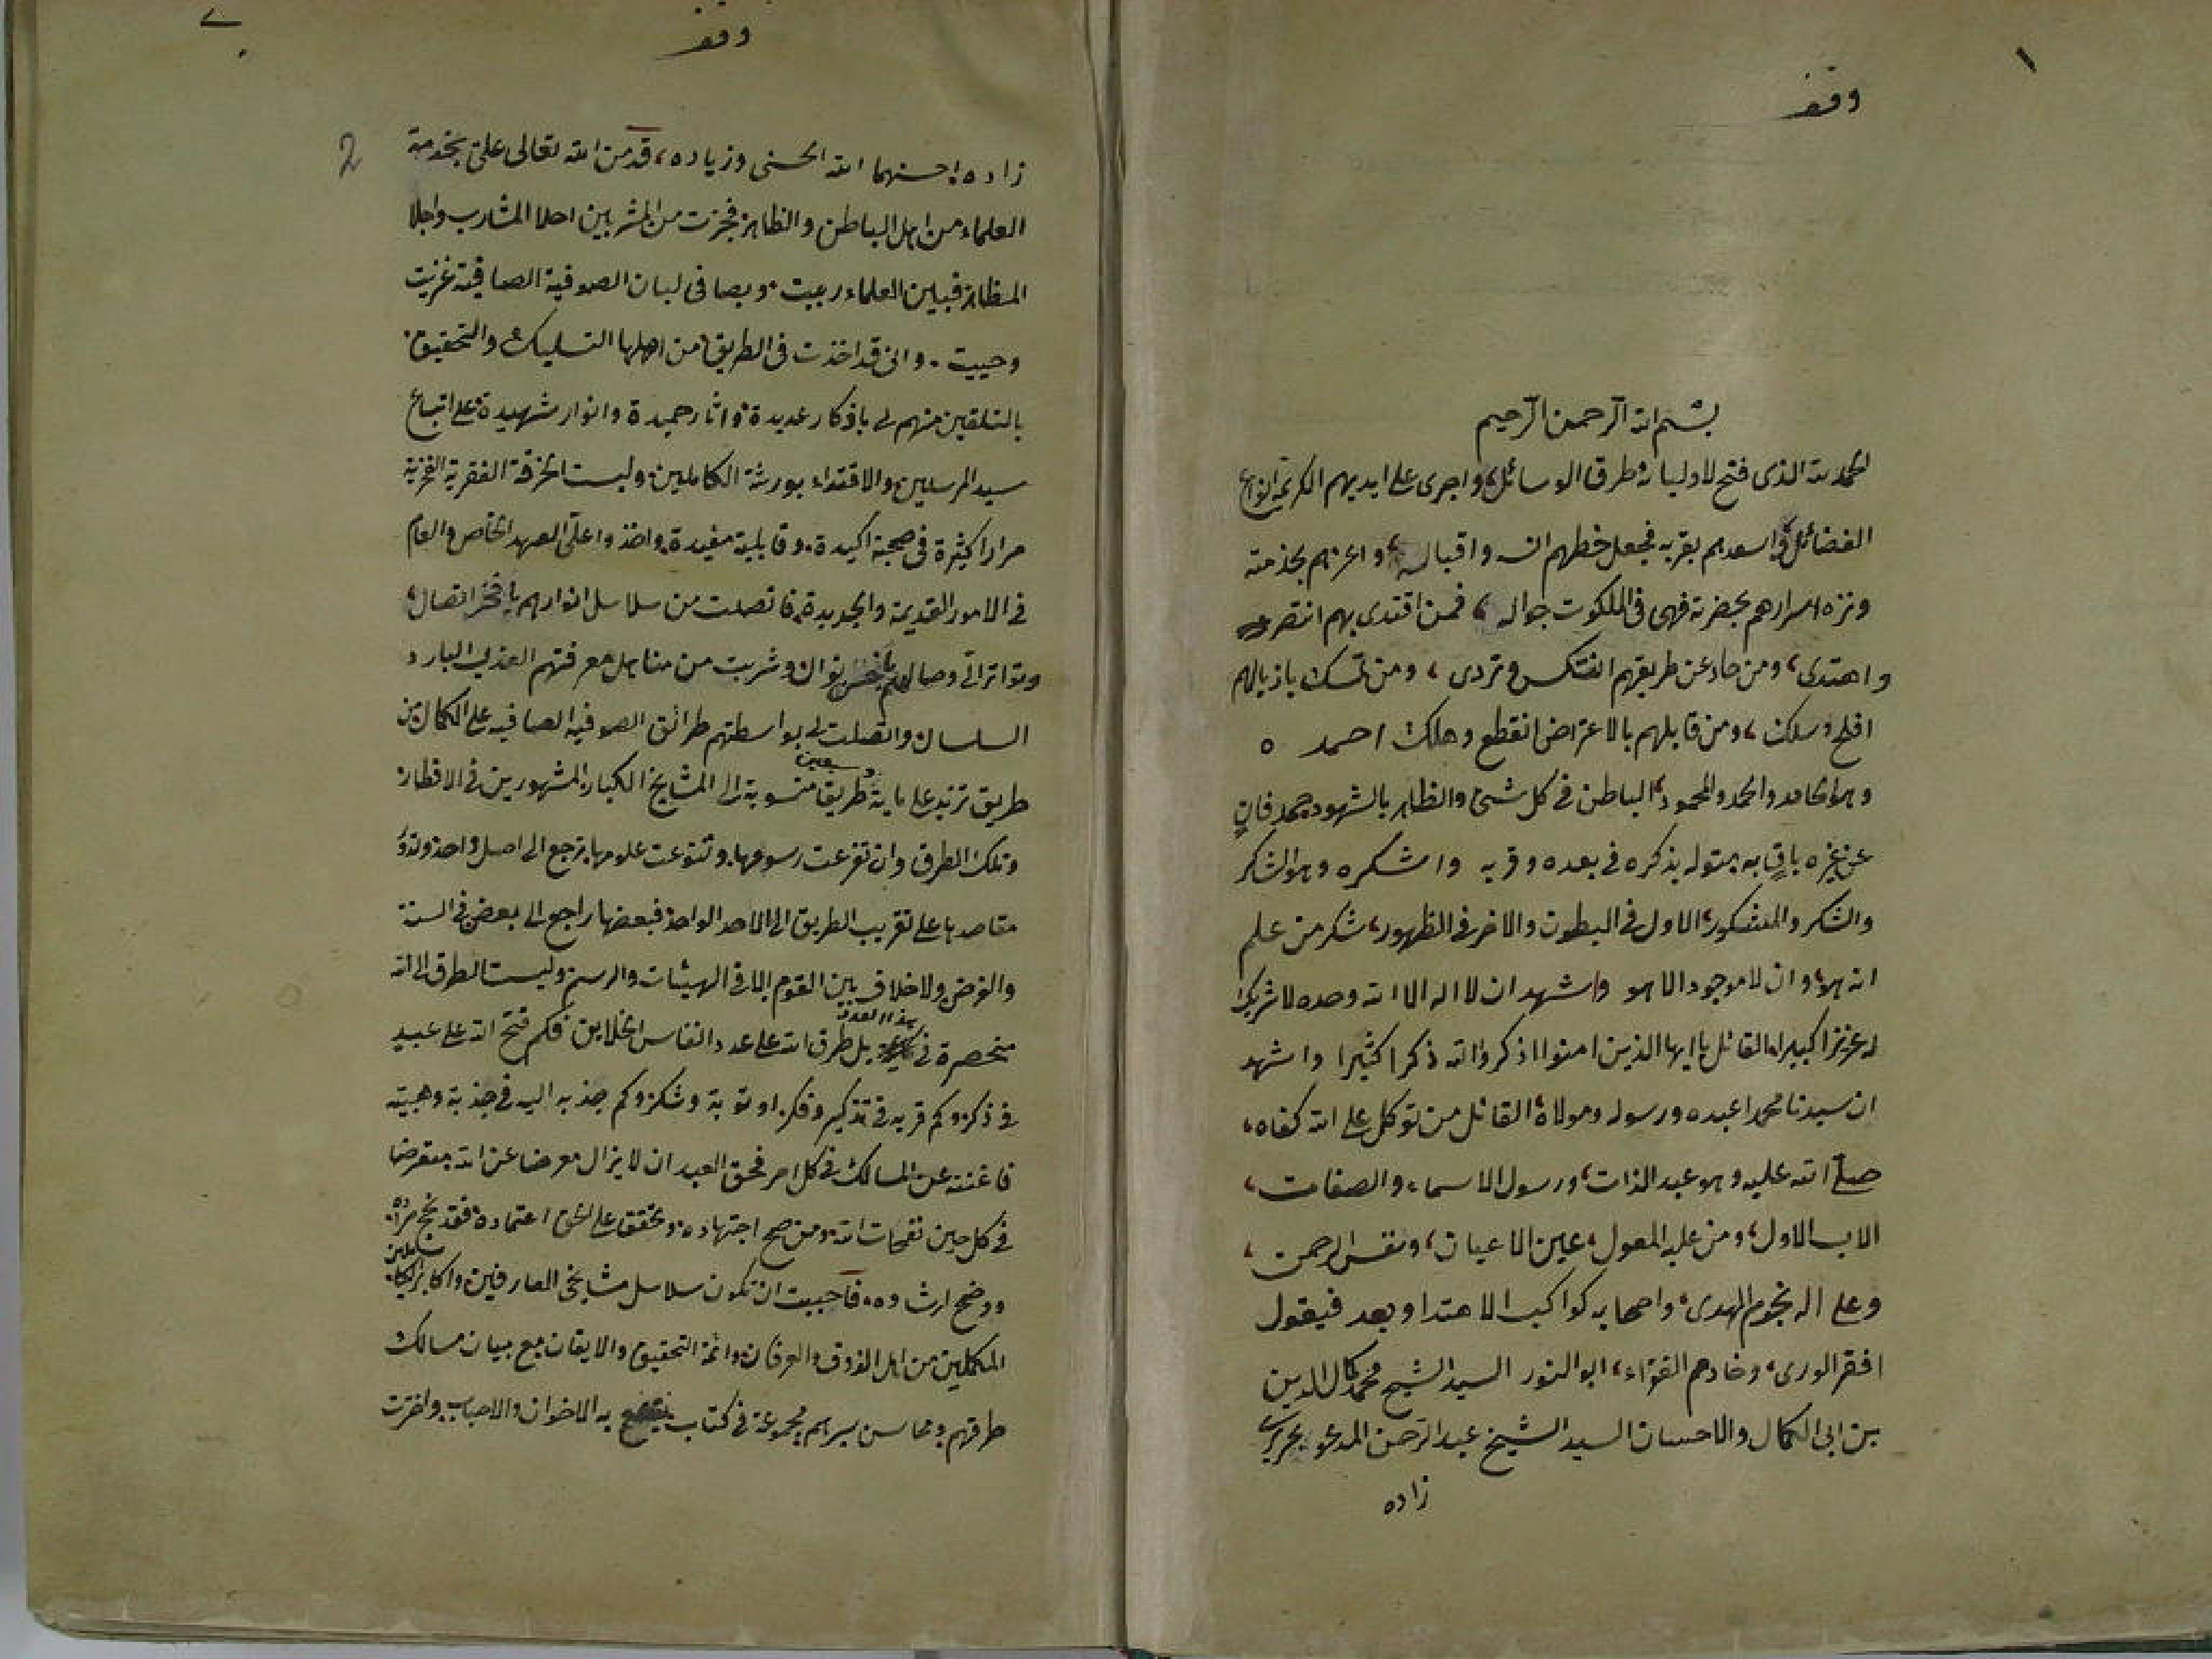 ١
وقف
بسم الله الرحمن الرحيم
الحمد لله الذى فتح لاوليائه طرق الوسائل، واجرى على ايديهم الكريمة انواع
الفضائل، واسعدهم بقربه فجعل حظهم انسه واقباله، واعزهم بخدمته
ونزه اسرارهم بحضرته فهى فى الملكوت جواله، فمن اقتدى بهم انتصر
واهتدى، ومن حاد عن طريقهم انتكس وتردى، ومن تمسك باذيالهم
افلح وسلك، ومن قابلهم بالاعتراض انقطع وهلك احمد ه
وهو الحامد والحمد والمحمود، الباطن فى كل شئ والظاهر بالشهود، حمد فانٍ
عن غيره باقٍ به بتوله بذكره فى بعده وقربه واشكره وهو الشاكر
والشكر والمشكور، الاول فى البطون والاخر فى الظهور، شكر من علم
انه هو، وان لا موجود الا هو واشهد ان لا اله الا الله وحده لا شريك
له عزيزا كبيرا، القائل يا ايها الذين امنوا اذكروا الله ذكرا كثيرا واشهد
ان سيدنا محمدا عبده ورسوله ومولاه، القائل من توكل على الله كفاه،
صلى الله عليه وهو عبد الذات، ورسول الاسماء والصفات،
الاب الاول، ومن عليه المعول، عين الاعيان، ونفس الرحمن،
وعلى اله نجوم الهدى، واصحابه كواكب الاهتدا وبعد فيقول
افقر الورى، وخادم الفقراء، ابو النور السيد الشيخ محمد كمال الدين
بن ابى الكمال والاحسان السيد الشيخ عبد الرحمن المدعو بحريرى
زاده
وقف
2
زاده احسنهما الله الحسنى وزياده، قد من الله تعالى علىّ بخدمة
العلماء من اهل الباطن والظاهر فحزت من المشربين احلا المشارب واجلا
المظاهر فبين العلماء ربيت، وبصافى لبان الصوفية الصافية غذيت
وحييت. وانى قد اخذت فى الطريق من اهلها التسليك والتحقيق،
بالتلقين منهم لى باذكار عديدة، واثار حميدة وانوار شهيدة، على اتباع
سيد المرسلين، والاقتداء بورثة الكاملين، ولبست الخرقة الفقرية الفخرية
مرارا كثيرة فى صحبة اكيدة، وقابلية مفيدة، واخذوا علىّ العهد الخاص والعام
فى الامور القديمة والجديدة، فاتصلت من سلاسل انوارهم بافخر اتصال،
وتواتر الى وصالهم نوال، وشربت من مناهل معرفتهم العذب البارد
السلسال، واتصلت لى بواسطتهم طرائق الصوفية الصافيه على الكمال، من
طريق تزيد على ماية وسبعين طريقا منسوبة الى المشايخ الكبار، المشهورين فى الاقطار،
وتلك الطرق وان تفرعت رسومها، وتنوعت علومها، ترجع الى اصل واحد وتدور
مقاصدها على تقريب الطريق الى الاحد الواحد، فبعضها راجع الى بعض فى السنة
والفرض، ولا خلاف بين القوم الا فى الهيئات والرسم، وليست الطرق الى الله
منحصرة فى هذا العدد بل طرق الله على عدد انفاس الخلايق فكم فتح الله على عبد
فى ذكر، وكم قربه فى تذكير وفكر، او توبة وشكر، وكم جذبه اليه فى جذبة وهبية
فاغنته عن المسالك فى كل امر فحق العبد ان لا يزال معرضا عن الله متعرضا
فى كل حين نفحات الله، ومن صح اجتهاده، وتحقق على الشئ اعتماده، فقد نجح مراده،
ووضح ارشاده، فاحببت ان تكون سلاسل مشايخى العارفين، واكابر الكاملين
المكملين، من اهل الذوق والعرفان، وائمة التحقيق والايقان، مع بيان مسالك
طرقهم، ومحاسن سيرهم، مجموعة فى كتاب ينتفع به الاخوان والاحباب، واخترت